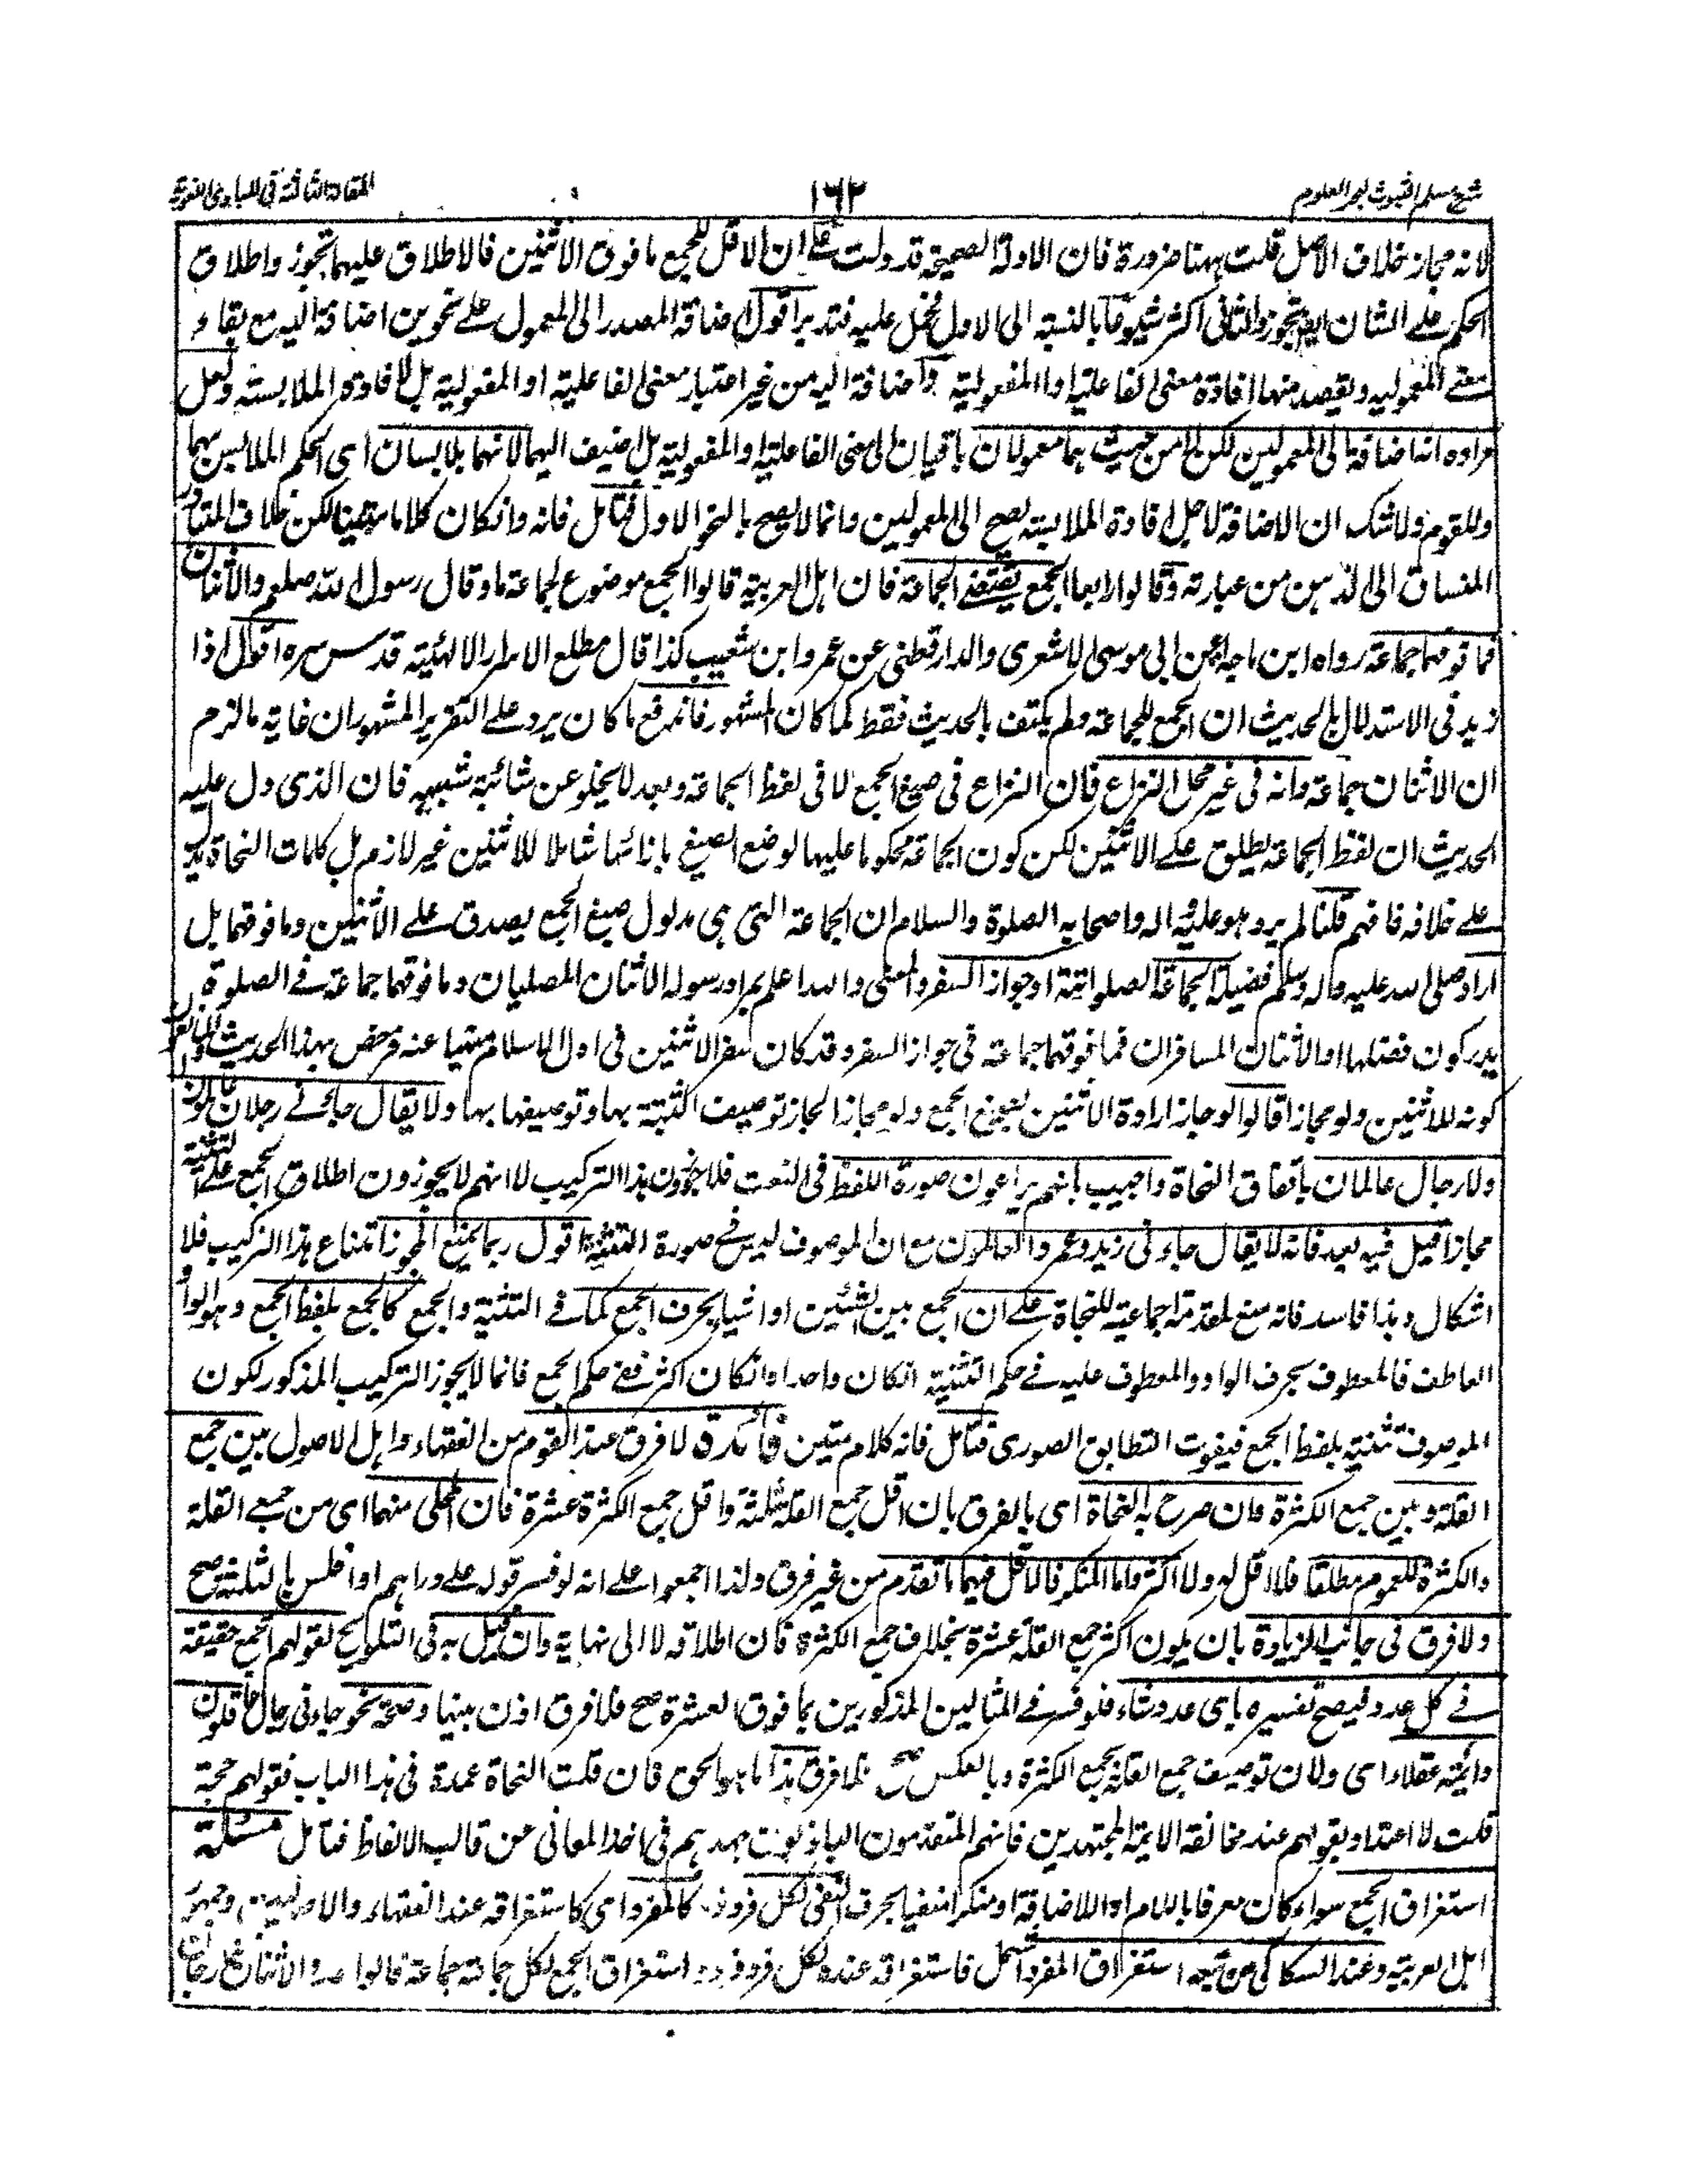 شرح مسلم الثبوت لبحر العلوم
١٦٢
المقالة الثالثة فى المبادى اللغوية
لانه مجاز خلاف الاصل قلت ههنا ضرورة فان الادلة الصحيحة قد دلت على ان الاقل للجمع ما فوق الاثنين فالاطلاق عليهما تجوز واطلاق
الحكم على الشان ايضا تجوز والثانى اكثر شيوعا بالنسبة الى الاول فحمل عليه فتدبر اقول اضافة المصدر الى المعمول على نحوين اضافة اليه مع بقاء
معنى المعموليه ويقصد منها افادة معنى الفاعلية او المفعولية واضافة اليه من غير اعتبار معنى الفاعلية او المفعولية بل لافادة الملابسة ولعل
مراده انه اضافة الى المعمولين لكن لا من حيث هما معمولان باقيان على معنى الفاعلية والمفعولية بل اضيف اليهما لانهما يلابسان اى الحكم الملابس بهما
وللقوم ولا شك ان الاضافة لاجل افادة الملابسة يصح الى المعمولين وانما لا يصح بالنحو الاول فتامل فانه وانكان كلاما متينا لكن خلاف المتبادر
المنساق الى الذهن من عبارته وقالوا رابعا الجمع يقتضى الجماعة فان اهل العربية قالوا الجمع موضوع لجماعة ما وقال رسول الله صلعم والاثنان
فما فوقهما جماعة رواه ابن ماجه عن ابى موسى الاشعرى والدارقطنى عن عمرو ابن شعيب كذا قال مطلع الاسرار الالهية قدس سره اقول اذا
زيد فى الاستدلال بالحديث ان الجمع للجماعة ولم يكتف بالحديث فقط كما كان المشهور فاندفع ما كان يرد على التقرير المشهور ان غاية ما لزم
ان الاثنان جماعة وانه فى غير محل النزاع فان النزاع فى صيغ الجمع لا فى لفظ الجماعة وبعد لا يخلو عن شائبة شبهه فان الذى دل عليه
الحديث ان لفظ الجماعة يطلق على الاثنين لكن كون الجماعة محكوما عليها لوضع الصيغ بازائها شاملا للاثنين غير لازم بل كلمات النحاة يدل
على خلافه فافهم قلنا لم يرد هو عليه واله واصحابه الصلوة والسلام ان الجماعة التى هى مدلول صيغ الجمع يصدق على الاثنين وما فوقهما بل
اراد صلى الله عليه واله وسلم فضيلة الجماعة الصلواتية او جواز السفر والمعنى والله اعلم بمراد رسوله الاثنان المصليان وما فوقهما جماعة فى الصلوة
يدركون فضلها او الاثنان المسافران فما فوقهما جماعة فى جواز السفر وقد كان سفر الاثنين فى اول الاسلام منهيا عنه فرخص بهذا الحديث والمانعون
كونه للاثنين ولو مجازا قالوا لو جاز ارادة الاثنين بصيغ الجمع ولو مجازا لجاز توصيف التثنية بها وتوصيفها بها ولا يقال جاءنى رجلان عالمون
ولا رجال عالمان باتفاق النحاة واجيب بانهم يراعون صورة اللفظ فى النعت فلا يجوزون هذا التركيب لا انهم لا يجوزون اطلاق الجمع على التثنية
مجازا قيل فيه بعد فانه لا يقال جاءنى زيد وعمرو العالمون مع ان الموصوف ليس فى صورة التثنية اقول ربما يمنع المجوز امتناع هذا التركيب فلا
اشكال وهذا فاسد فانه منع لمقدمة اجماعية للنحاة على ان الجمع بين الشيئين او اشياء بحرف الجمع كما فى التثنية والجمع كالجمع بلفظ الجمع وهو الواو
العاطف فالمعطوف بحرف الواو والمعطوف عليه فى حكم التثنية انكان واحدا وانكان اكثر ففى حكم الجمع فانما لا يجوز التركيب المذكور لكون
الموصوف تثنية بلفظ الجمع فيفوت التطابق الصورى فتامل فانه كلام متين فائدة لا فرق عند القوم من الفقهاء واهل الاصول بين جمع
القلة وبين جمع الكثرة وان صرح به النحاة اى بالفرق بان اقل جمع القلة ثلثة واقل جمع الكثرة عشرة فان المحلى منهما اى من جمعى القلة
والكثرة للعموم مطلقا فلا اقل له ولا اكثر واما المنكر فالاقل فيهما ما تقدم من غير فرق ولذا اجمعوا على انه لو فسر قوله على دراهم او افلس بالثلثة صح
ولا فرق فى جانب الزيادة بان يكون اكثر جمع القلة عشرة بخلاف جمع الكثرة فان اطلاقه لا الى نهاية وان قيل به فى التلويح لقولهم الجمع حقيقة
فى كل عدد ليصح تفسيره باى عدد شاء فلو فسر فى المثالين المذكورين بما فوق العشرة صح فلا فرق اذن بينهما وصحة نحو جاءنى رجال عاقلون
وائمة عقلاء اى ولان توصيف جمع القلة بجمع الكثرة وبالعكس صح فلا فرق هذا ما هو الحق فان قلت النحاة عمدة فى هذا الباب فقولهم حجة
قلت لا اعتداد بقولهم عند مخالفة الايمة المجتهدين فانهم المتقدمون الباذلون جهدهم فى اخذ المعانى عن قالب الالفاظ فتامل مسئلة
استغراق الجمع سواء كان معرفا باللام او الاضافة او منكرا منفيا بحرف النفى لكل فرد فرد كالمفرد اى كاستغراقه عند الفقهاء والاصوليين وجمهور
اهل العربية وعند السكاكى ومن تبعه استغراق المفرد اشمل فاستغراقه عنده لكل فرد فرد واستغراق الجمع لكل جماعة جماعة قالوا